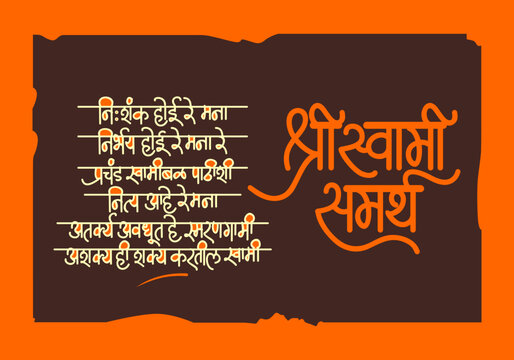 निःशंक होई रे मना
निर्भय होई रे मना रे
प्रचंड स्वामीबळ पाठीशी
नित्य आहे रे मना
अतर्क्य अवधूत हे स्मरणगामी
अशक्य ही शक्य करतील स्वामी
श्री स्वामी
समर्थ